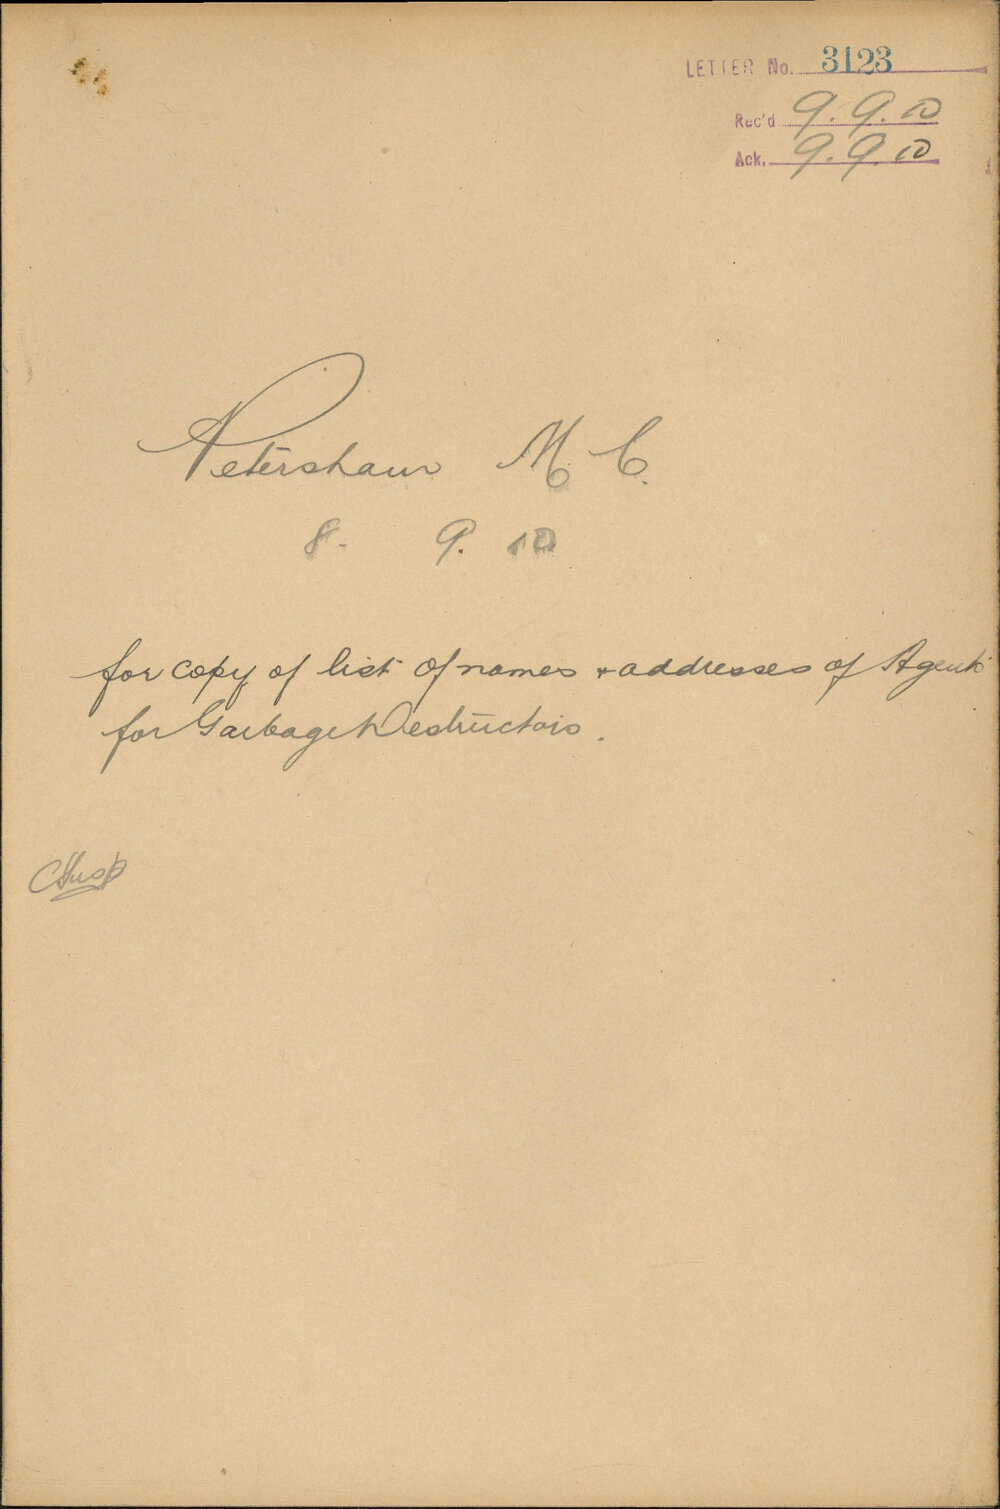 LETTER No. 3123
Rec'd 9.9.10
Ack. 9.9.10
Petersham M. C.
8. 9. 10
for copy of list of names + addresses of Agents
for Garbage Destructors.